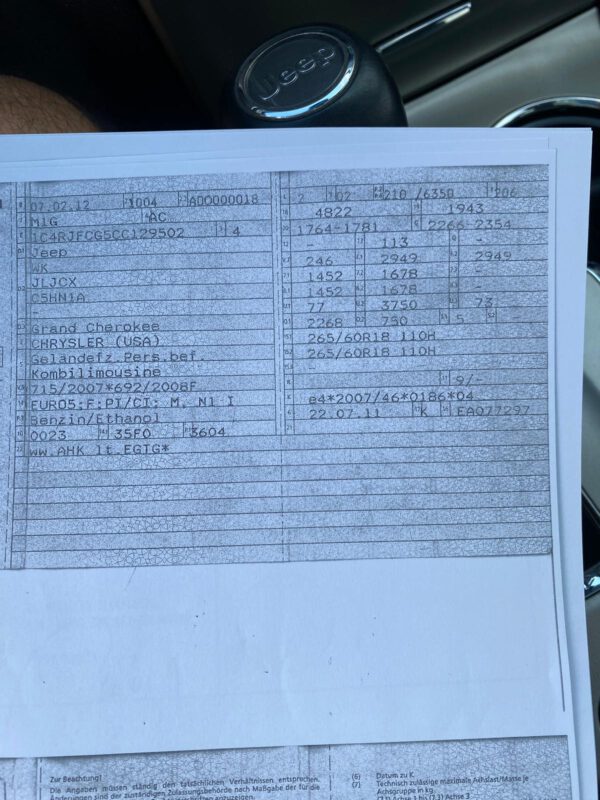 Jeep
07.02.12 1004 AD0000018
M1G AC
1C4RJFCG5CC129502 4
Jeep
WK
JLJCX
C5HN1A
-
Grand Cherokee
CHRYSLER (USA)
Geländefz.Pers.bef.
Kombilimousine
715/2007*692/2008F
EURO5;F;PI/CI; M, N1 I
Benzin/Ethanol
0023 35F0 3604
ww.AHK lt.EGTG*
2 02 210 /6350 206
4822 1943
1764-1781 2266-2354
- 113 -
246 2949 2949
1452 1678 -
1452 1678 -
77 3750 73
2268 750 5
265/60R18 110H
265/60R18 110H
-
- 9/-
e4*2007/46*0186*04
22.07.11 K EA077297
Zur Beachtung!
Die Angaben müssen ständig den tatsächlichen Verhältnissen entsprechen.
Änderungen sind der zuständigen Zulassungsbehörde nach Maßgabe der für die
(6) Datum zu K
(7) Technisch zulässige maximale Achslast/Masse je
Achsgruppe in kg